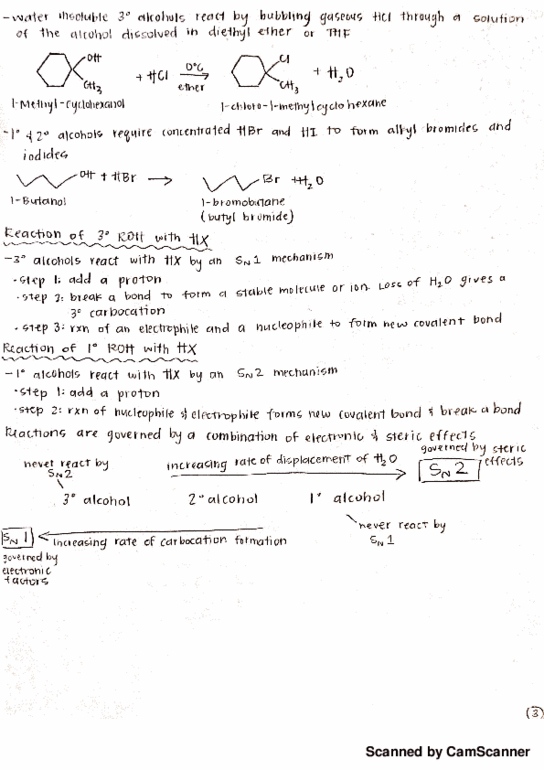 -water insoluble 3° alcohols react by bubbling gaseous HCl through a solution
of the alcohol dissolved in diethyl ether or THF
OH
CH₃
+ HCl
0°C
ether
Cl
CH₃
+ H₂O
1-Methyl-cyclohexanol
1-chloro-1-methylcyclohexane
-1° & 2° alcohols require concentrated HBr and HI to form alkyl bromides and
iodides
OH + HBr → Br + H₂O
1-Butanol
1-bromobutane
(butyl bromide)
Reaction of 3° ROH with HX
-3° alcohols react with HX by an SN1 mechanism
·step 1: add a proton
·step 2: break a bond to form a stable molecule or ion. Loss of H₂O gives a
3° carbocation
·step 3: rxn of an electrophile and a nucleophile to form new covalent bond
Reaction of 1° ROH with HX
-1° alcohols react with HX by an SN2 mechanism
·step 1: add a proton
·step 2: rxn of nucleophile & electrophile forms new covalent bond & break a bond
Reactions are governed by a combination of electronic & steric effects
never react by
SN2
increasing rate of displacement of H₂O
governed by steric
effects
SN2
3° alcohol 2° alcohol 1° alcohol
never react by
SN1
SN1
increasing rate of carbocation formation
governed by
electronic
factors
3
Scanned by CamScanner